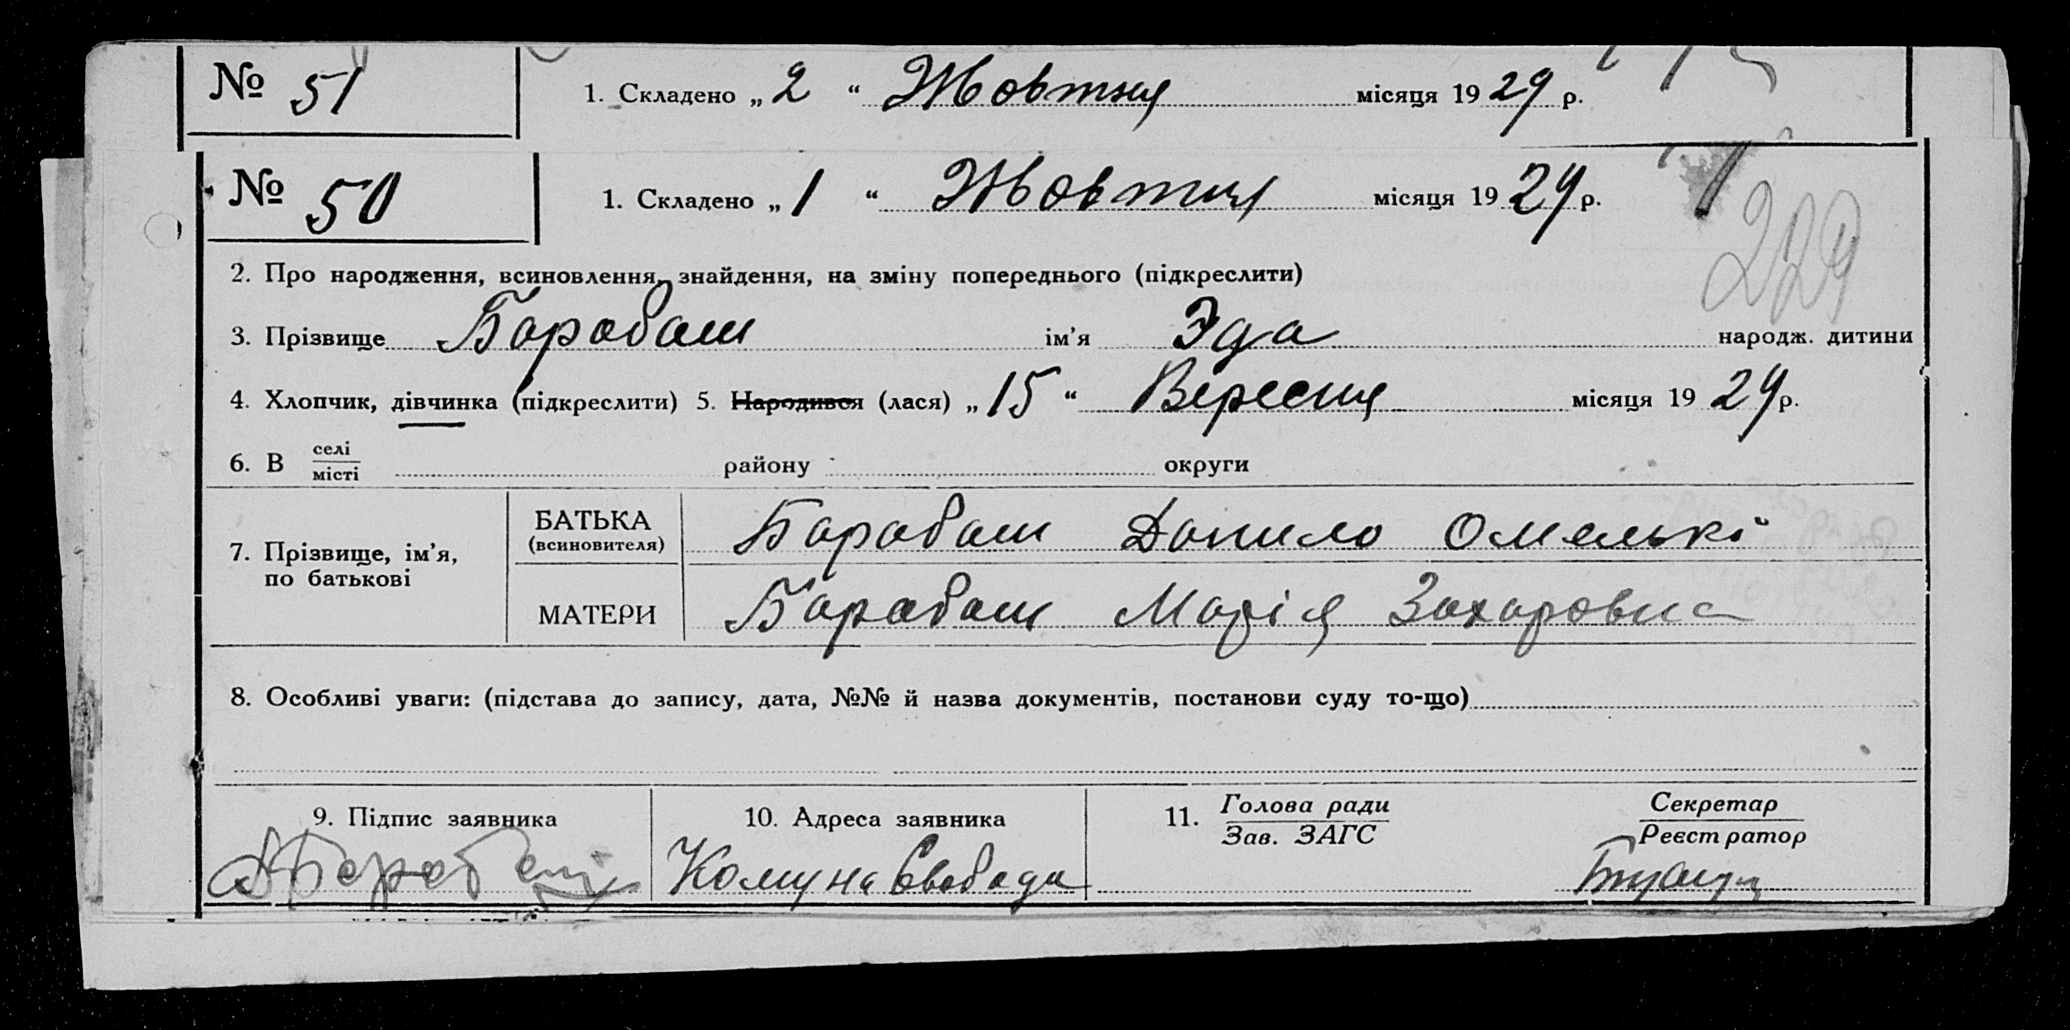 № 51 1. Складено „ 2 “ Жовтня місяця 19 29 р.
№ 50 1. Складено „ 1 “ Жовтня місяця 19 29 р.
229
2. Про народження, всиновлення, знайдення, на зміну попереднього (підкреслити)
3. Прізвище Барабаш ім’я Эда народж. дитини
4. Хлопчик, дівчинка (підкреслити) 5. Народився (лася) „ 15 “ Вересня місяця 19 29 р.
6. В селі місті району округи
7. Прізвище, ім’я, по батькові
БАТЬКА (всиновителя) Барабаш Данило Омелькі
МАТЕРИ Барабаш Марія Захаровна
8. Особливі уваги: (підстава до запису, дата, №№ й назва документів, постанови суду то-що)
9. Підпис заявника 10. Адреса заявника 11. Голова ради Секретар
Зав. ЗАГС Реєстратор
ДБарабаш Комуна Свобода